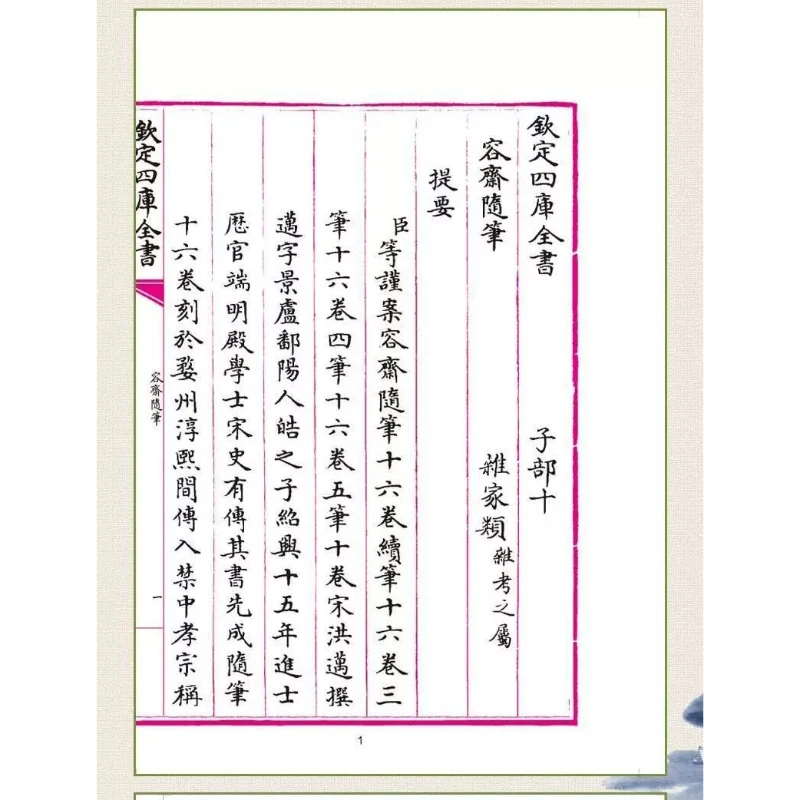 欽定四庫全書 子部十
容齋隨筆 雜家類雜考之屬
提要
臣等謹案容齋隨筆十六卷續筆十六卷三
筆十六卷四筆十六卷五筆十卷宋洪邁撰
邁字景盧鄱陽人皓之子紹興十五年進士
歴官端明殿學士宋史有傳其書先成隨筆
十六卷刻於婺州淳熙間傳入禁中孝宗稱
欽定四庫全書
容齋隨筆
一
1